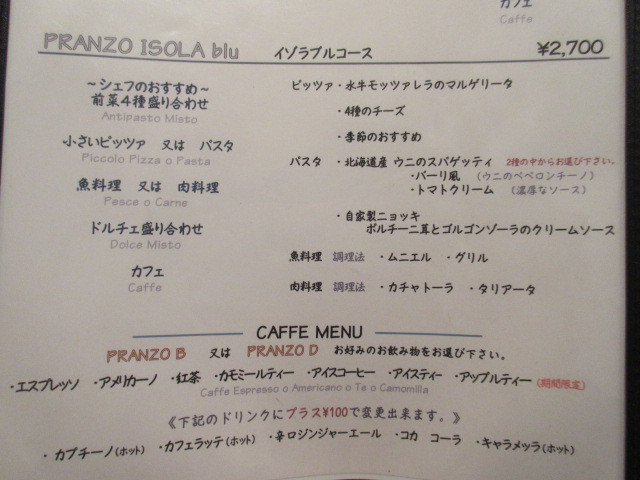 カフェ
Caffe
PRANZO ISOLA blu イゾラブルコース ¥2,700
～シェフのおすすめ～
前菜4種盛り合わせ
Antipasto Misto
小さいピッツァ 又は パスタ
Piccolo Pizza o Pasta
魚料理 又は 肉料理
Pesce o Carne
ドルチェ盛り合わせ
Dolce Misto
カフェ
Caffe
ピッツァ・水牛モッツァレラのマルゲリータ
・4種のチーズ
・季節のおすすめ
パスタ ・北海道産 ウニのスパゲッティ 2種の中からお選び下さい。
・バーリ風 （ウニのペペロンチーノ）
・トマトクリーム （濃厚なソース）
・自家製ニョッキ
ポルチーニ茸とゴルゴンゾーラのクリームソース
魚料理 調理法 ・ムニエル ・グリル
肉料理 調理法 ・カチャトーラ ・タリアータ
CAFFE MENU
PRANZO B 又は PRANZO D お好みのお飲み物をお選び下さい。
・エスプレッソ ・アメリカーノ ・紅茶 ・カモミールティー ・アイスコーヒー ・アイスティー ・アップルティー（期間限定）
Caffe Espresso o Americano o Te o Camomilla
《下記のドリンクにプラス¥100で変更出来ます。》
・カプチーノ（ホット） ・カフェラッテ（ホット） ・辛ロジンジャーエール ・コカ コーラ ・キャラメッラ（ホット）